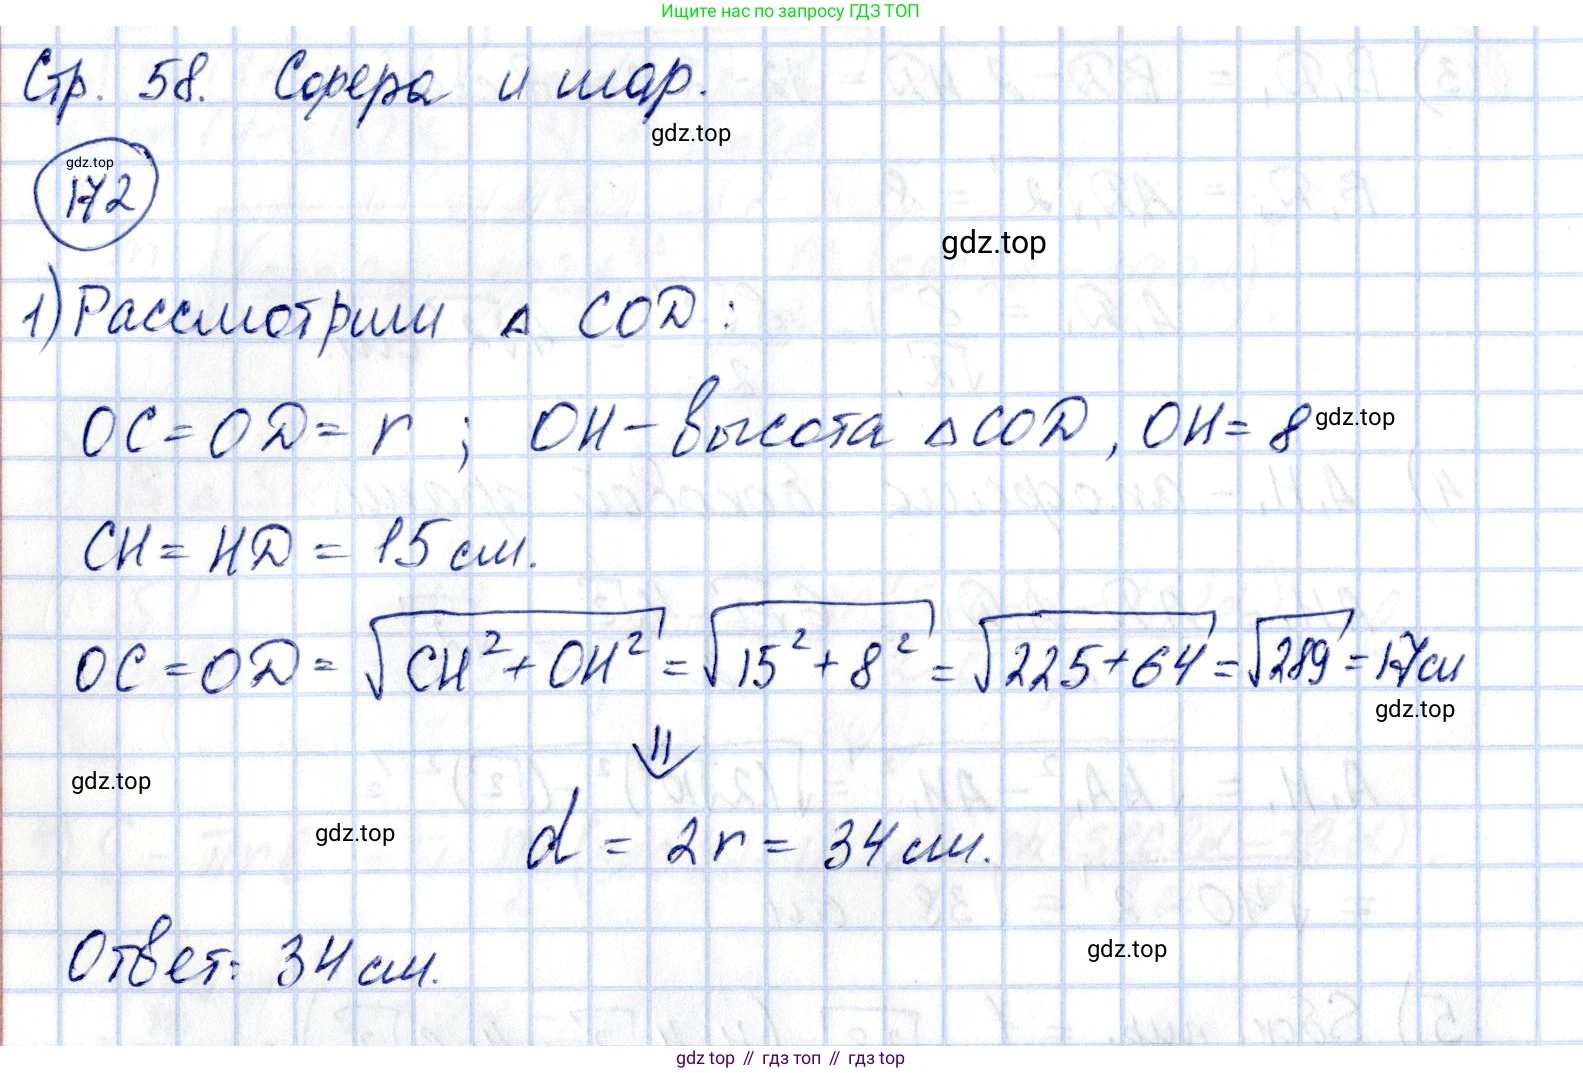 Ищите нас по запросу ГДЗ ТОП
Стр. 58. Сфера и шар.
gdz.top
gdz.top
172
gdz.top
1) Рассмотрим △ COD:
OC = OD = r ; OH - высота △ COD, OH = 8
gdz.top
CH = HD = 15 см.
OC = OD = √(CH² + OH²) = √(15² + 8²) = √(225 + 64) = √289 = 17 см
gdz.top
⇓
gdz.top
gdz.top
d = 2r = 34 см.
Ответ: 34 см.
gdz.top
gdz top // гдз топ // гдз top